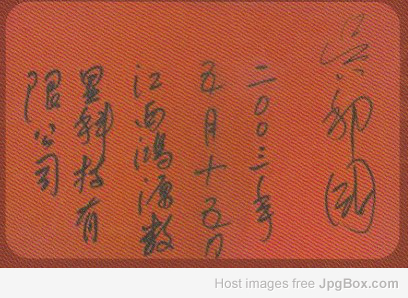 吴邦國
二〇〇三年
五月十五日
江西鸿源数
显科技有
限公司
Host images free JpgBox.com